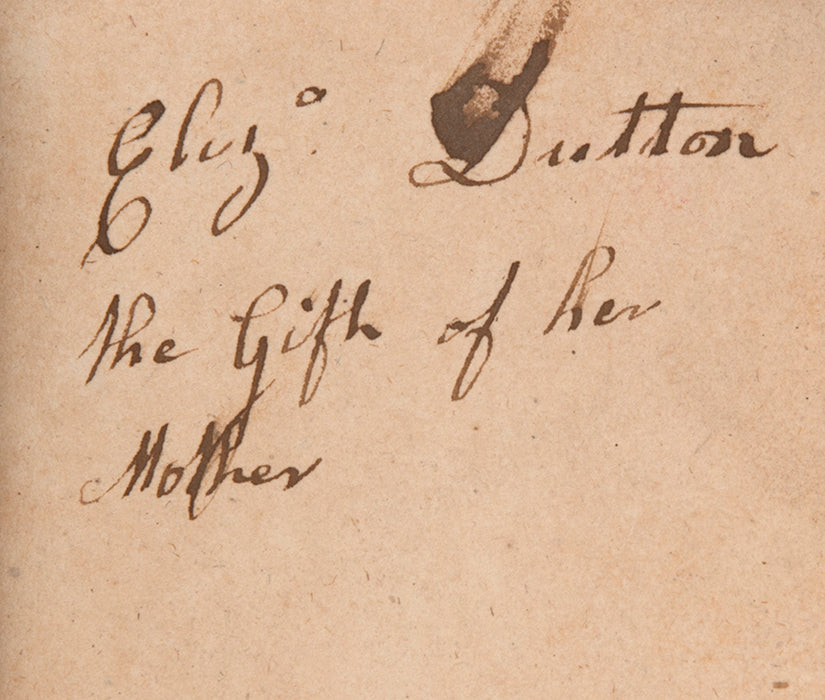 Eliz.º Dutton
the Gift of her
Mother